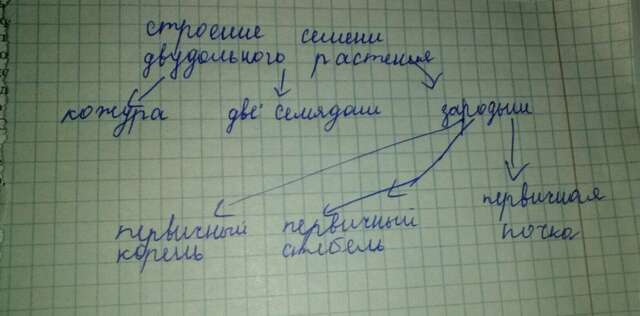 строение семени
двудольного растения
кожура две семядоли зародыш
первичный первичный первичная
корень стебель почка